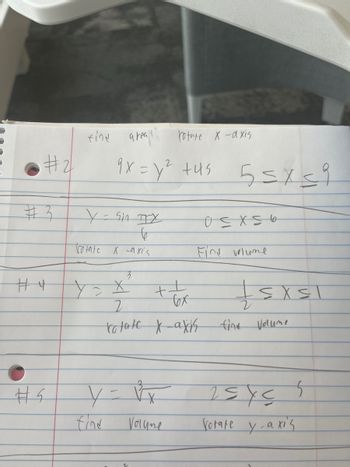 find area rotate x-axis
#2 9x = y² + 45 5 ≤ x ≤ 9
#3 y = sin πx/6 0 ≤ x ≤ 6
rotate x-axis Find volume
#4 y = x³/2 + 1/6x 1/2 ≤ x ≤ 1
rotate x-axis find volume
#5 y = ∛x 2 ≤ y ≤ 5
find volume rotate y-axis